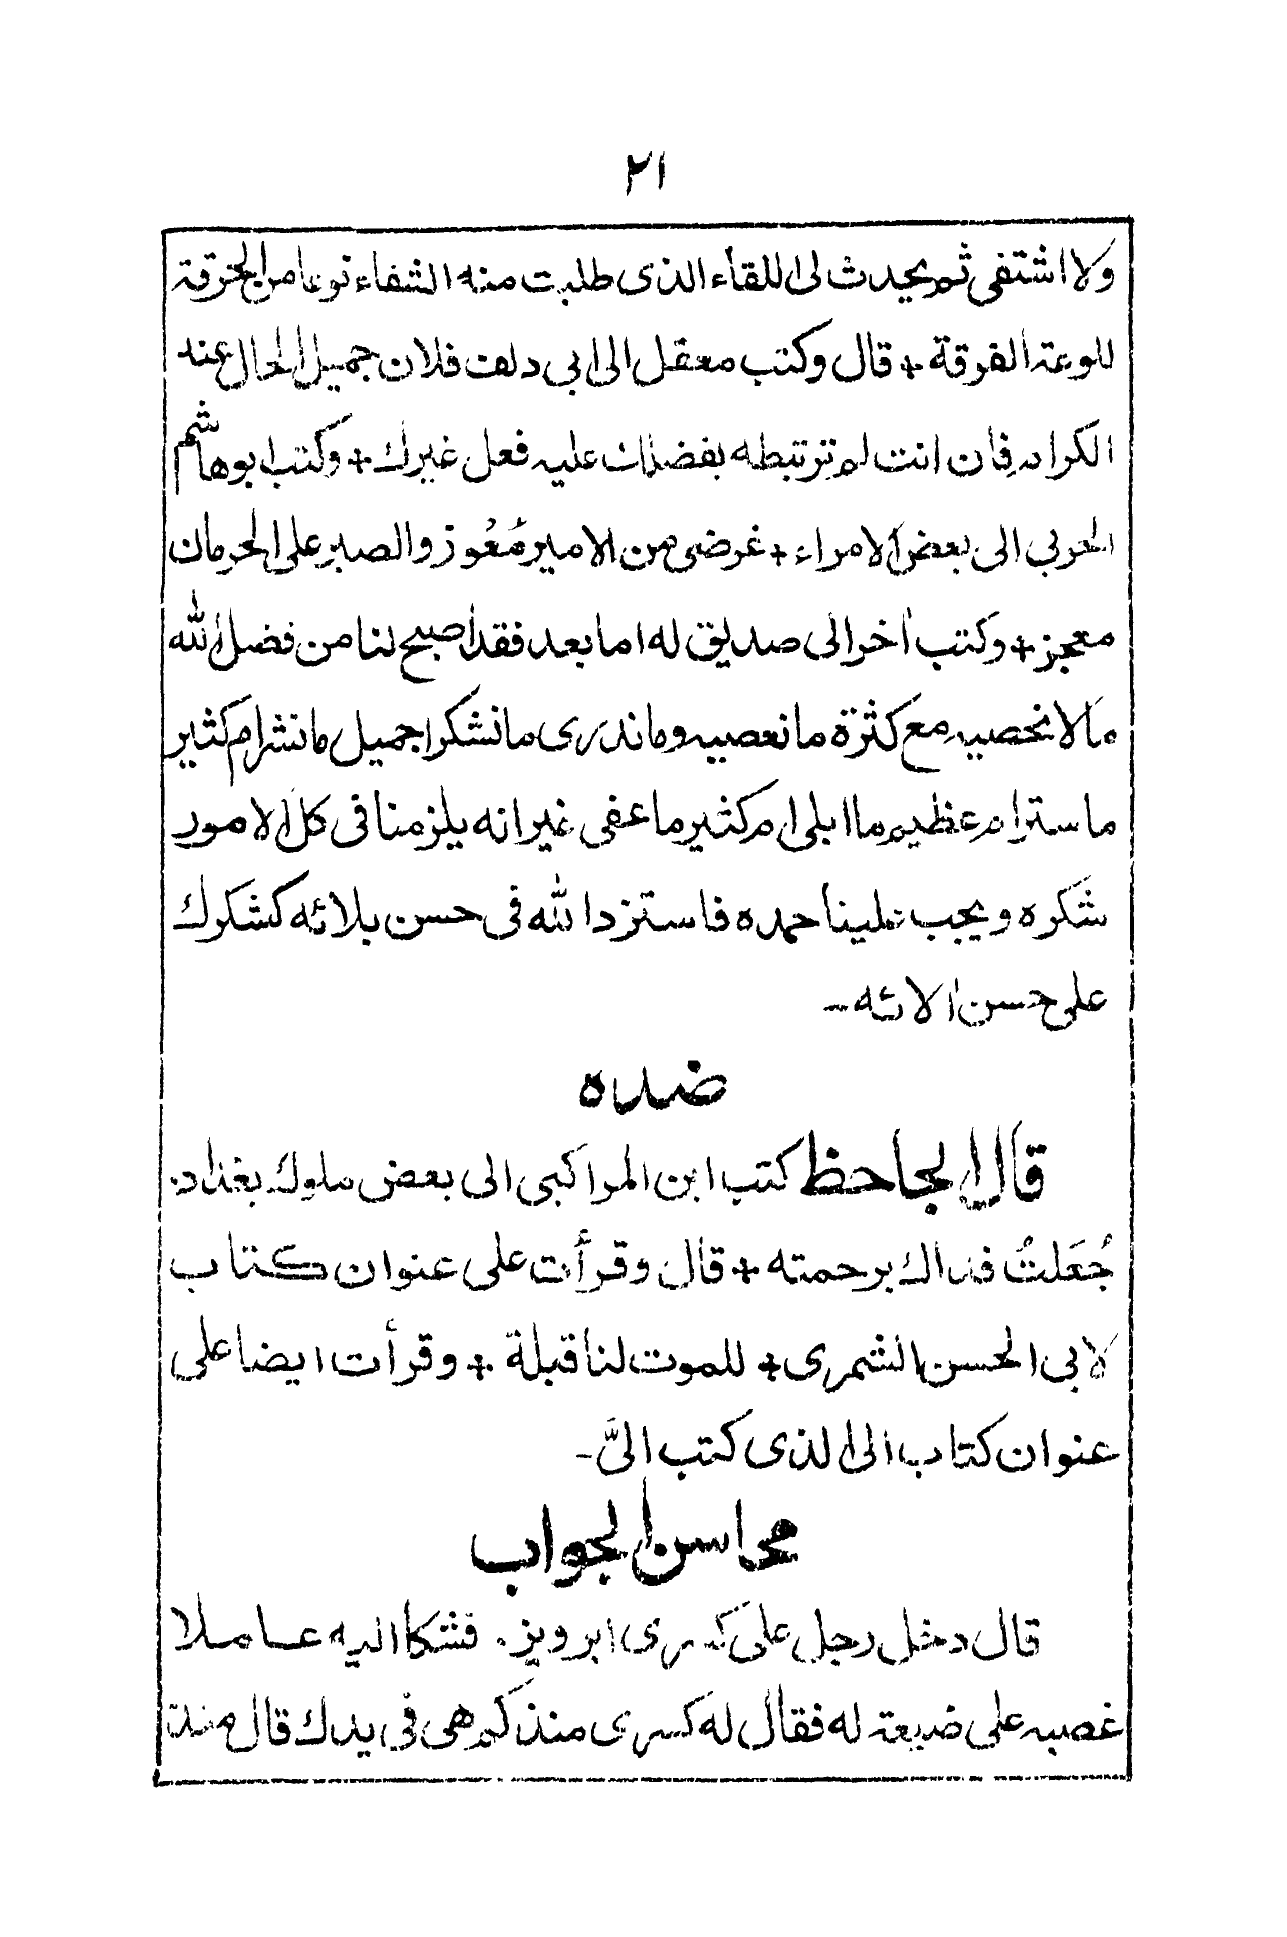 ٢١
ولا اشتفى ثم يحدث لى اللقاء الذى طلبت منه الشفاء نوعا من الحرقة
للوعة الفرقة + قال وكتب معقل الى ابى دلف فلان جميل الحال عند
الكرام فان انت لم ترتبطه بفضلك عليه فعل غيرك + وكتب ابو هاشم
الحربى الى بعض الامراء + غرضى من الامير مُعُوز والصبر على الحرمان
معجز + وكتب أخر الى صديق له اما بعد فقد اصبح لنا من فضل الله
مالا نحصيه مع كثرة ما نعصيه وما ندرى ما نشكر اجميل ما نشر ام كثير
ما ستر ام عظيم ما ابلى ام كثير ما عفى غير انه يلزمنا فى كل الامور
شكره ويجب علينا حمده فاستزد الله فى حسن بلائه كشكرك
على حسن الائه -
ضده
قال الجاحظ كتب ابن المراكبى الى بعض ملوك بغداد
جُعَلتُ فداك برحمته + قال وقرأت على عنوان كتاب
لابى الحسن الشمرى + للموت لنا قبلة + وقرأت ايضا على
عنوان كتاب الى الذى كتب الىَّ -
محاسن الجواب
قال دخل رجل على كسرى ابرويز. فشكا اليه عاملا
غصبه على ضيعة له فقال له كسرى منذ كم هى فى يدك قال منذ